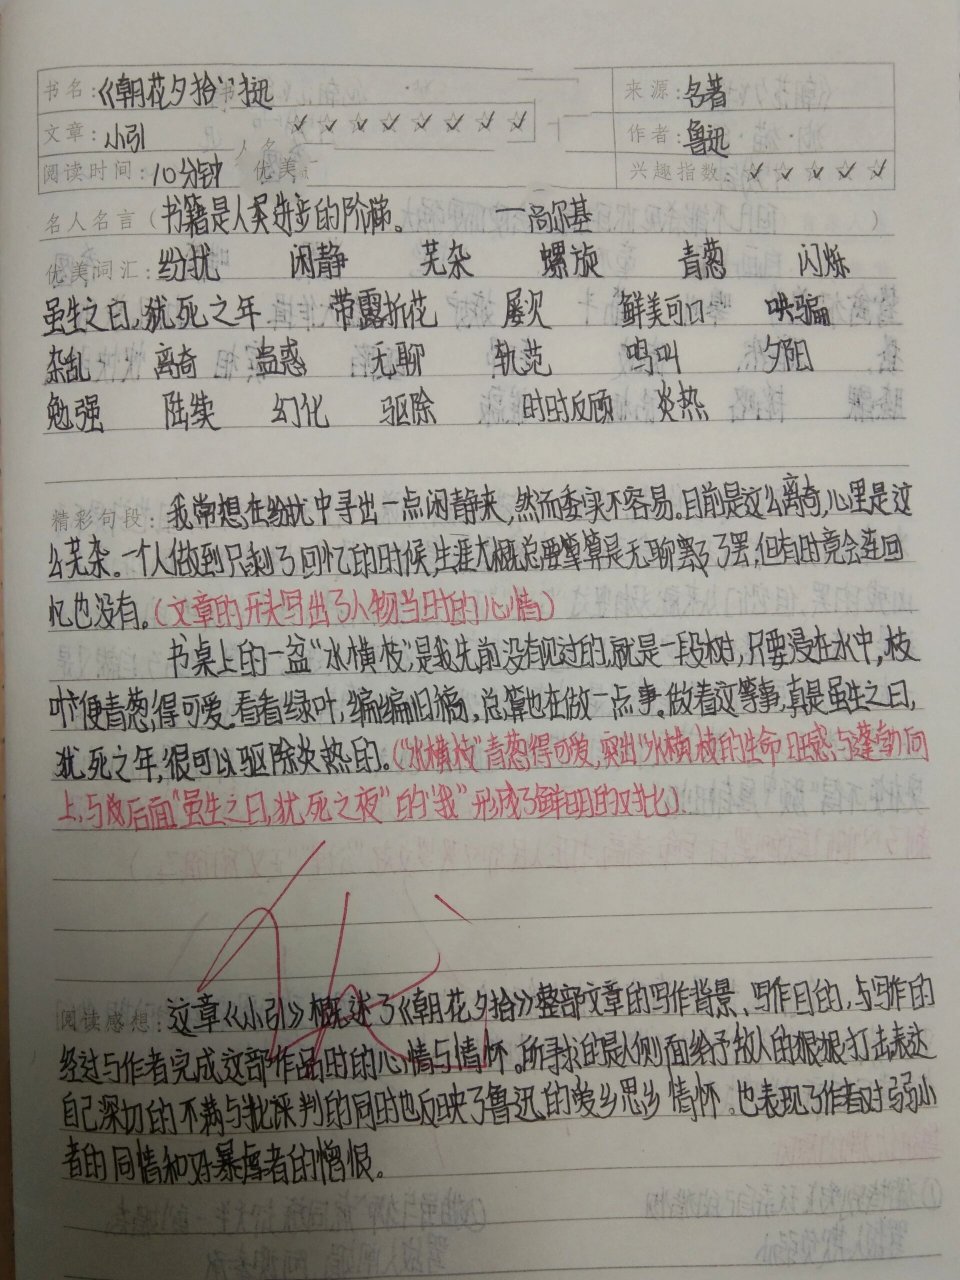 书名：《朝花夕拾》
来源：名著
文章：小引
作者：鲁迅
阅读时间：10分钟
兴趣指数：
名人名言（书籍是人类进步的阶梯。 —高尔基 ）
优美词汇：纷扰 闲静 芜杂 螺旋 青葱 闪烁
虽生之日，犹死之年 带露折花 屡次 鲜美可口 哄骗
杂乱 离奇 蛊惑 无聊 轨范 鸣叫 夕阳
勉强 陆续 幻化 驱除 时时反顾 炎热
精彩句段：我常想在纷扰中寻出一点闲静来，然而委实不容易。目前是这么离奇，心里是这
么芜杂。一个人做到只剩了回忆的时候，生涯大概总要算是无聊了罢，但有时竟会连回
忆也没有。（文章的开头写出了人物当时的心情）
书桌上的一盆“水横枝”，是我先前没有见过的，就是一段树，只要浸在水中，枝
叶便青葱得可爱。看看绿叶，编编旧稿，总算也在做一点事。做着这等事，真是虽生之日，
犹死之年，很可以驱除炎热的。（“水横枝”青葱得可爱，突出“水横枝的生命旺盛与蓬勃向
上，与后面“虽生之日，犹死之夜”的“我”形成了鲜明的对比）
优
阅读感想：这章《小引》概述了《朝花夕拾》整部文章的写作背景、写作目的，与写作的
经过与作者完成这部作品时的心情与情怀。所寻求的是从侧面给予敌人的狠狠打击表达
自己深切的不满与批评判的同时也反映了鲁迅的爱乡思乡情怀。也表现了作者对弱小
者的同情和对暴虐者的憎恨。